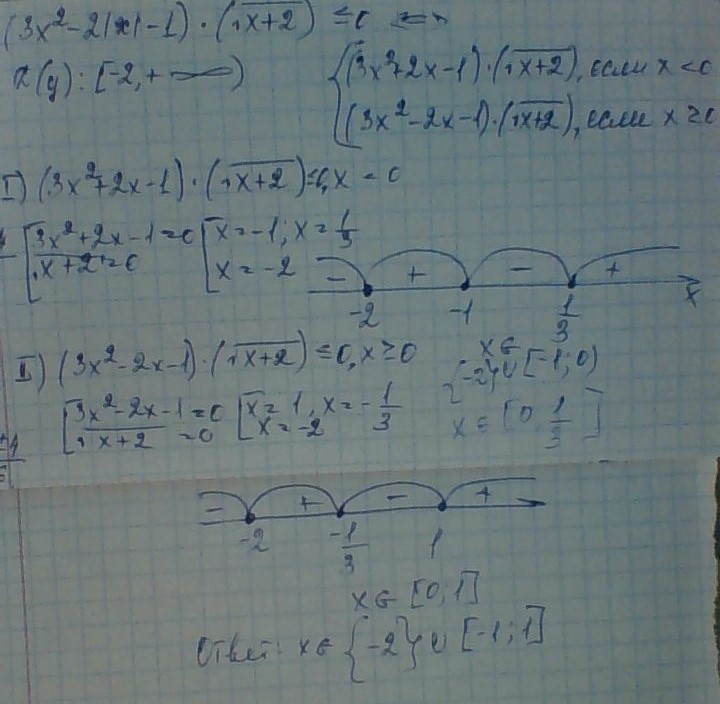 (3x²-2|x|-1)·(√x+2) ≤0 <=>
D(y): [-2,+∞)
{(3x²+2x-1)·(√x+2), если x<0
(3x²-2x-1)·(√x+2), если x≥0
I) (3x²+2x-1)·(√x+2)≤0, x<0
[3x²+2x-1=0 [x=-1; x=1/3
√x+2=0 x=-2
- + - +
-2 -1 1/3 x
x∈
{-2}∪[-1;0)
x∈[0,1/3]
II) (3x²-2x-1)·(√x+2)≤0, x≥0
[3x²-2x-1=0 [x=1, x=-1/3
√x+2=0 x=-2
- + - +
-2 -1/3 1
x∈[0;1]
Ответ: x∈{-2}∪[-1;1]